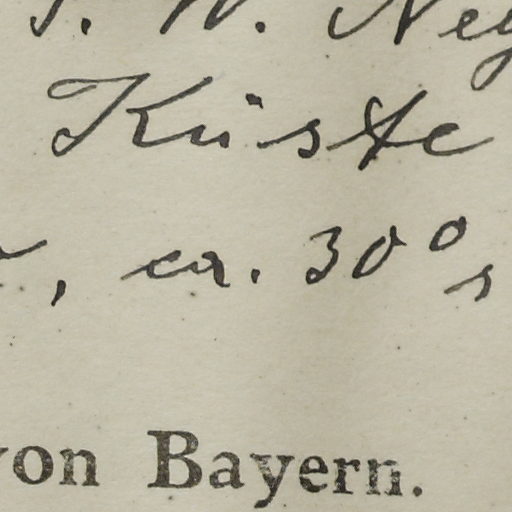 Küste
, ca. 30° s
von Bayern.